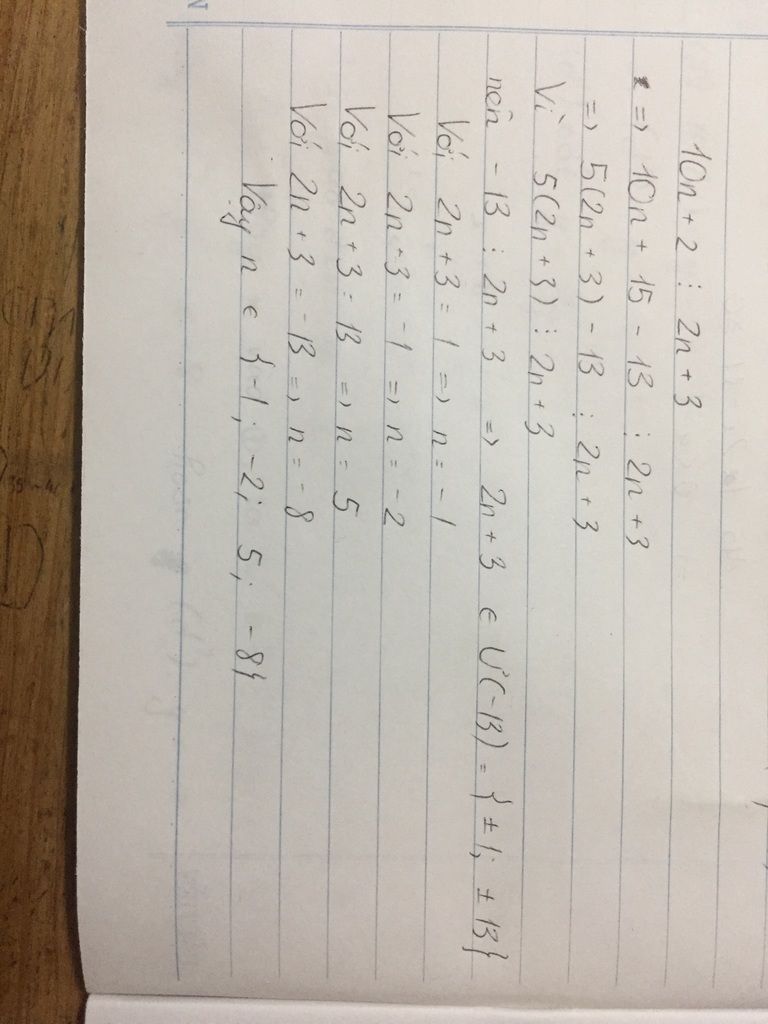 10n + 2 ⋮ 2n + 3
=> 10n + 15 - 13 ⋮ 2n + 3
=> 5(2n + 3) - 13 ⋮ 2n + 3
Vì 5(2n + 3) ⋮ 2n + 3
nên - 13 ⋮ 2n + 3 => 2n + 3 ∈ Ư(-13) = { ± 1; ± 13}
Với 2n + 3 = 1 => n = - 1
Với 2n + 3 = - 1 => n = - 2
Với 2n + 3 = 13 => n = 5
Với 2n + 3 = - 13 => n = - 8
Vậy n ∈ { -1; -2; 5; -8}